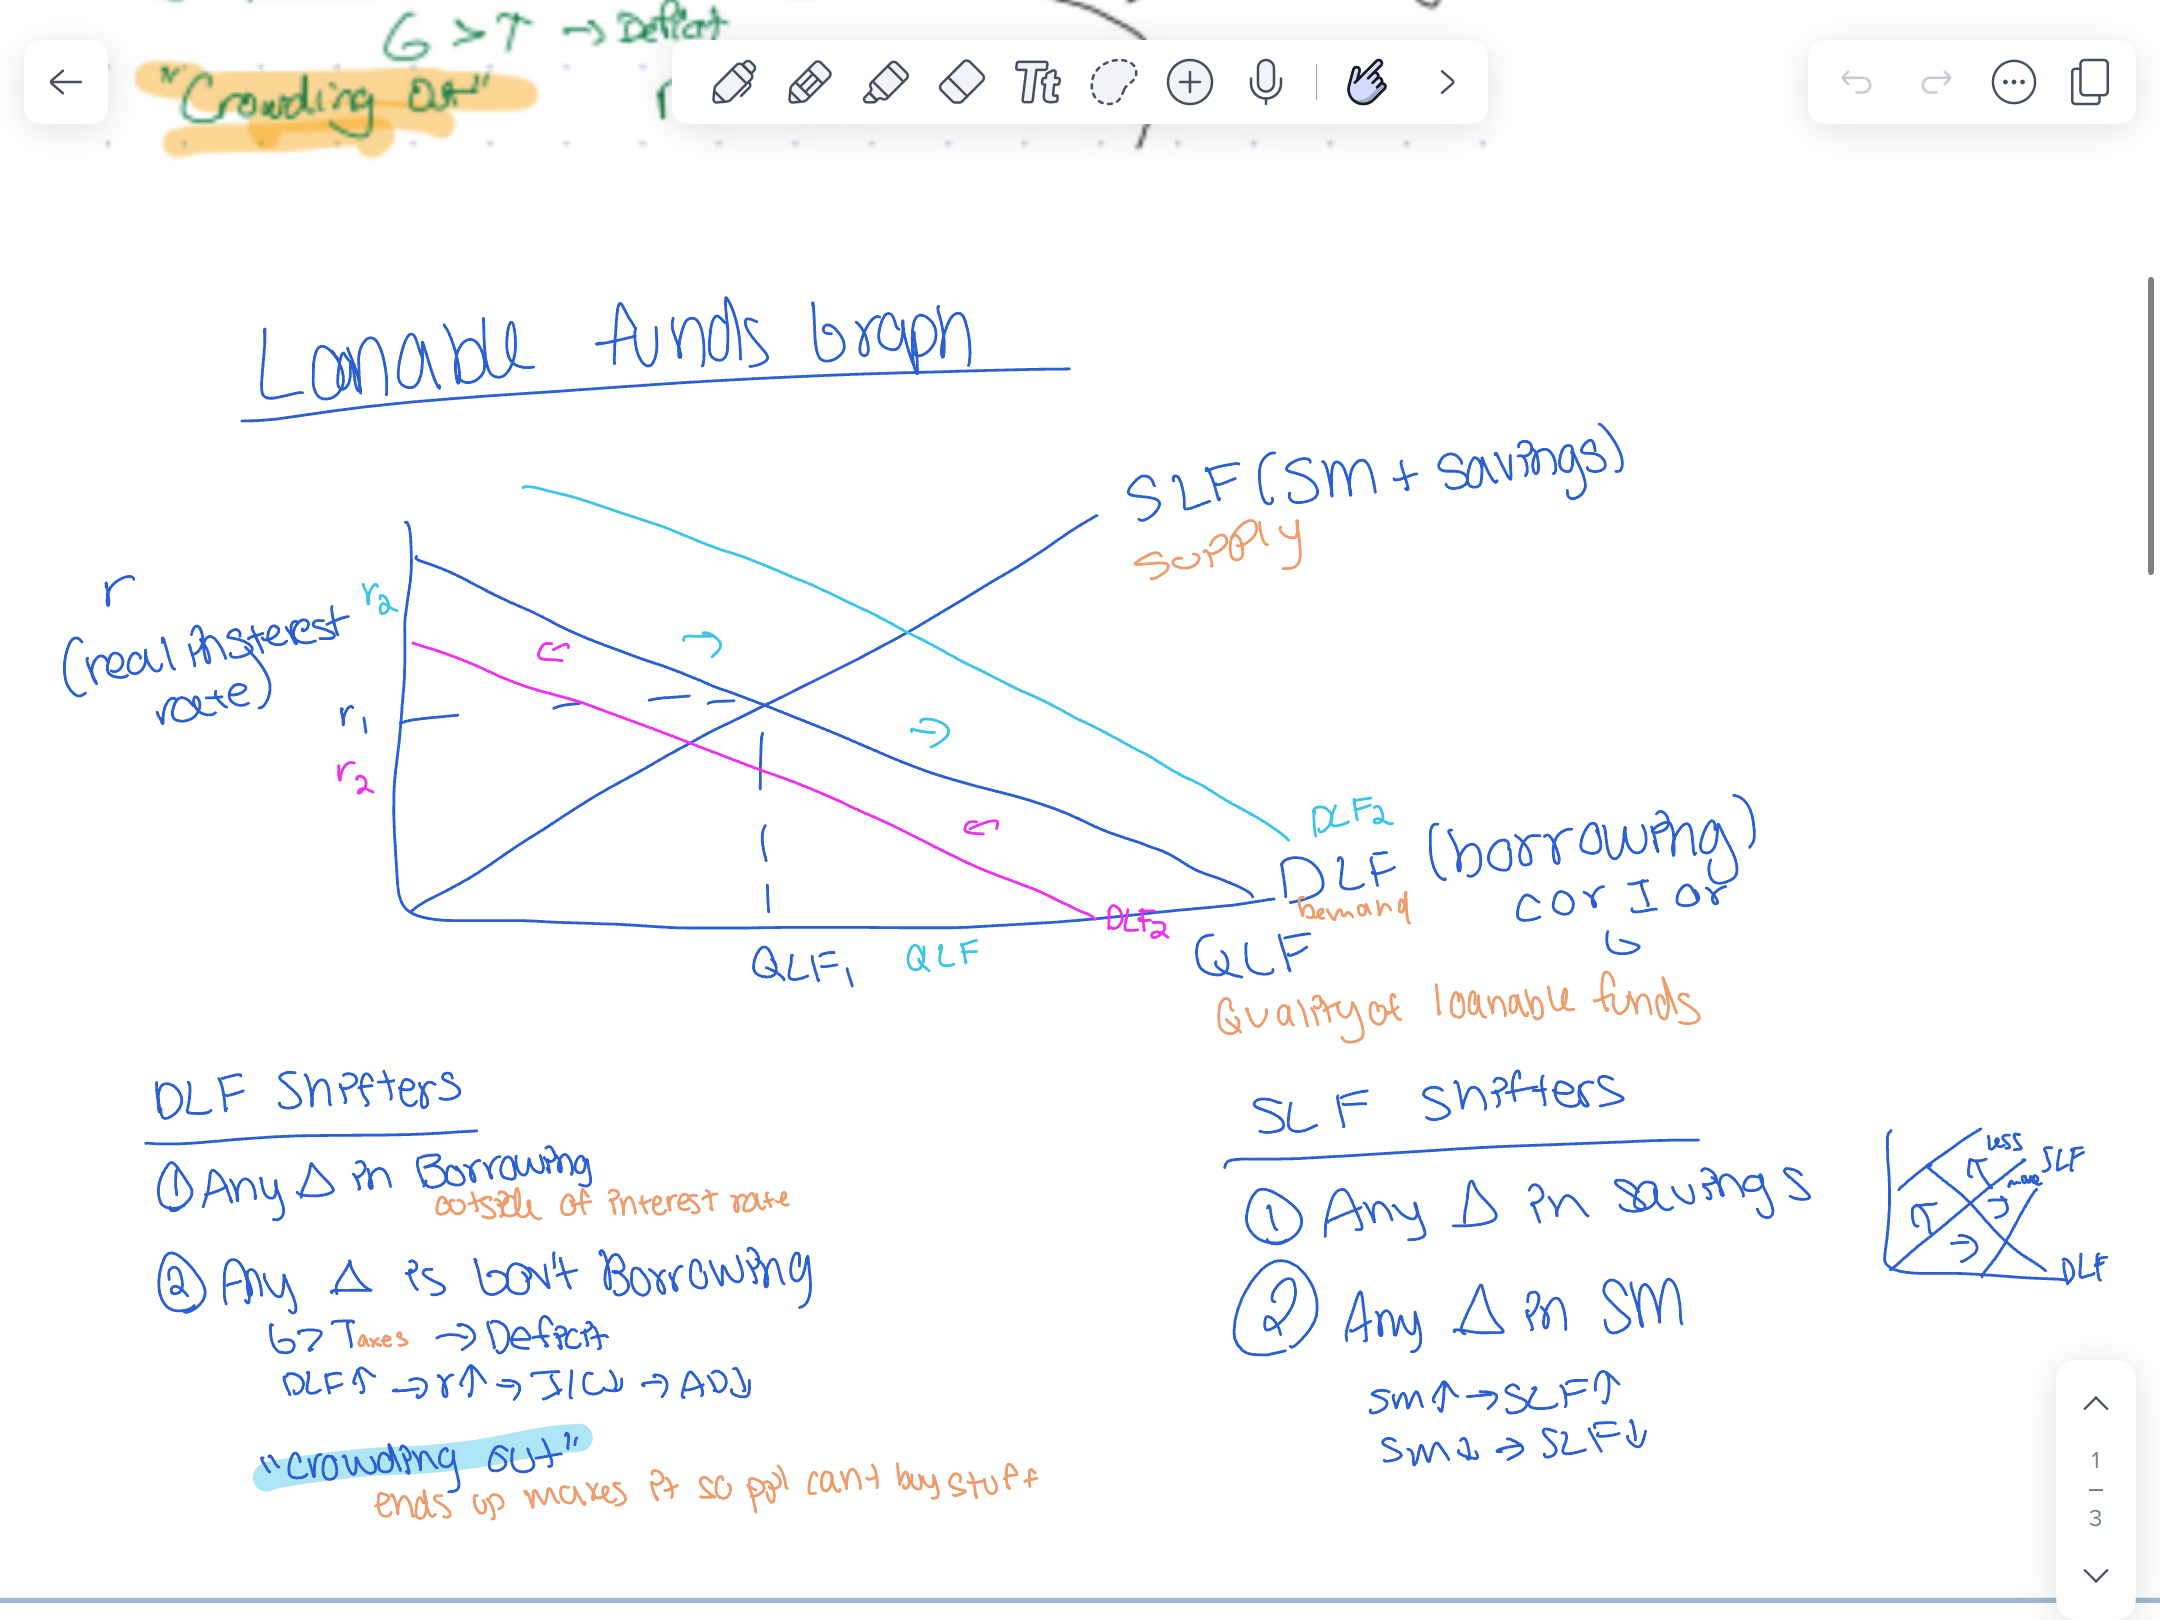 G > T → Deficit
"Crowding Out"
r
Tt
Lonable funds Graph
SLF (SM + savings)
supply
r
(real insterest
rate)
r2
r1
r2
DLF2
DLF (borrowing)
Demand
C or I or
G
DLF2
QLF1
QLF
QLF
Quality of loanable funds
DLF Shifters
① Any Δ in Borrowing
outside of interest rate
② Any Δ is Gov't Borrowing
G > Taxes → Deficit
DLF↑ → r↑ → I/C↓ → AD↓
"crowding out"
ends up makes it so ppl can't buy stuff
SLF Shifters
① Any Δ in savings
② Any Δ in SM
SM↑ → SLF↑
SM↓ → SLF↓
Less
SLF
more
DLF
1
3